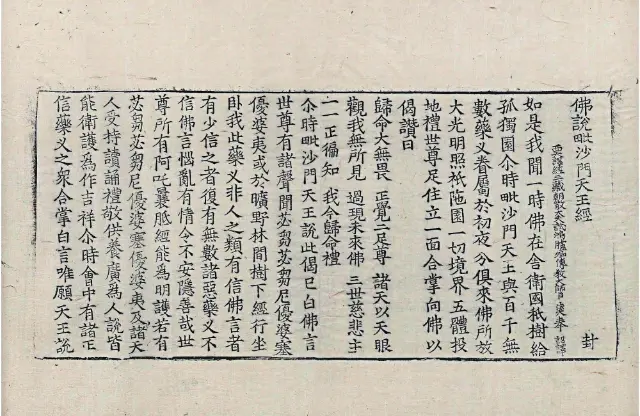 佛說毗沙門天王經 封
譯經三藏朝散大夫試鴻臚 傳教大師 奉 詔譯
如是我聞一時佛在舍衛國祇樹給
孤獨園尒時毗沙門天王與百千無
數藥义眷屬於初夜分俱來佛所放
大光明照祇陁園一切境界五體投
地禮世尊足住立一面合掌向佛以
偈讚曰
歸命大無畏 正覺二足尊 諸天以天眼
觀我無所見 過現未來佛 三世慈悲主
一一正徧知 我今歸命禮
尒時毗沙門天王說此偈已白佛言
世尊有諸聲聞苾芻苾芻尼優婆塞
優婆夷或於曠野林間樹下經行坐
卧我此藥义非人之類有信佛言者
有少信之者復有無數諸惡藥义不
信佛言惱亂有情令不安隱善哉世
尊所有阿吒曩胝經能為明護若有
苾芻苾芻尼優婆塞優婆夷及諸天
人受持讀誦禮敬供養廣為人說皆
能衛護為作吉祥尒時會中有諸正
信藥义之眾合掌白言唯願天王說